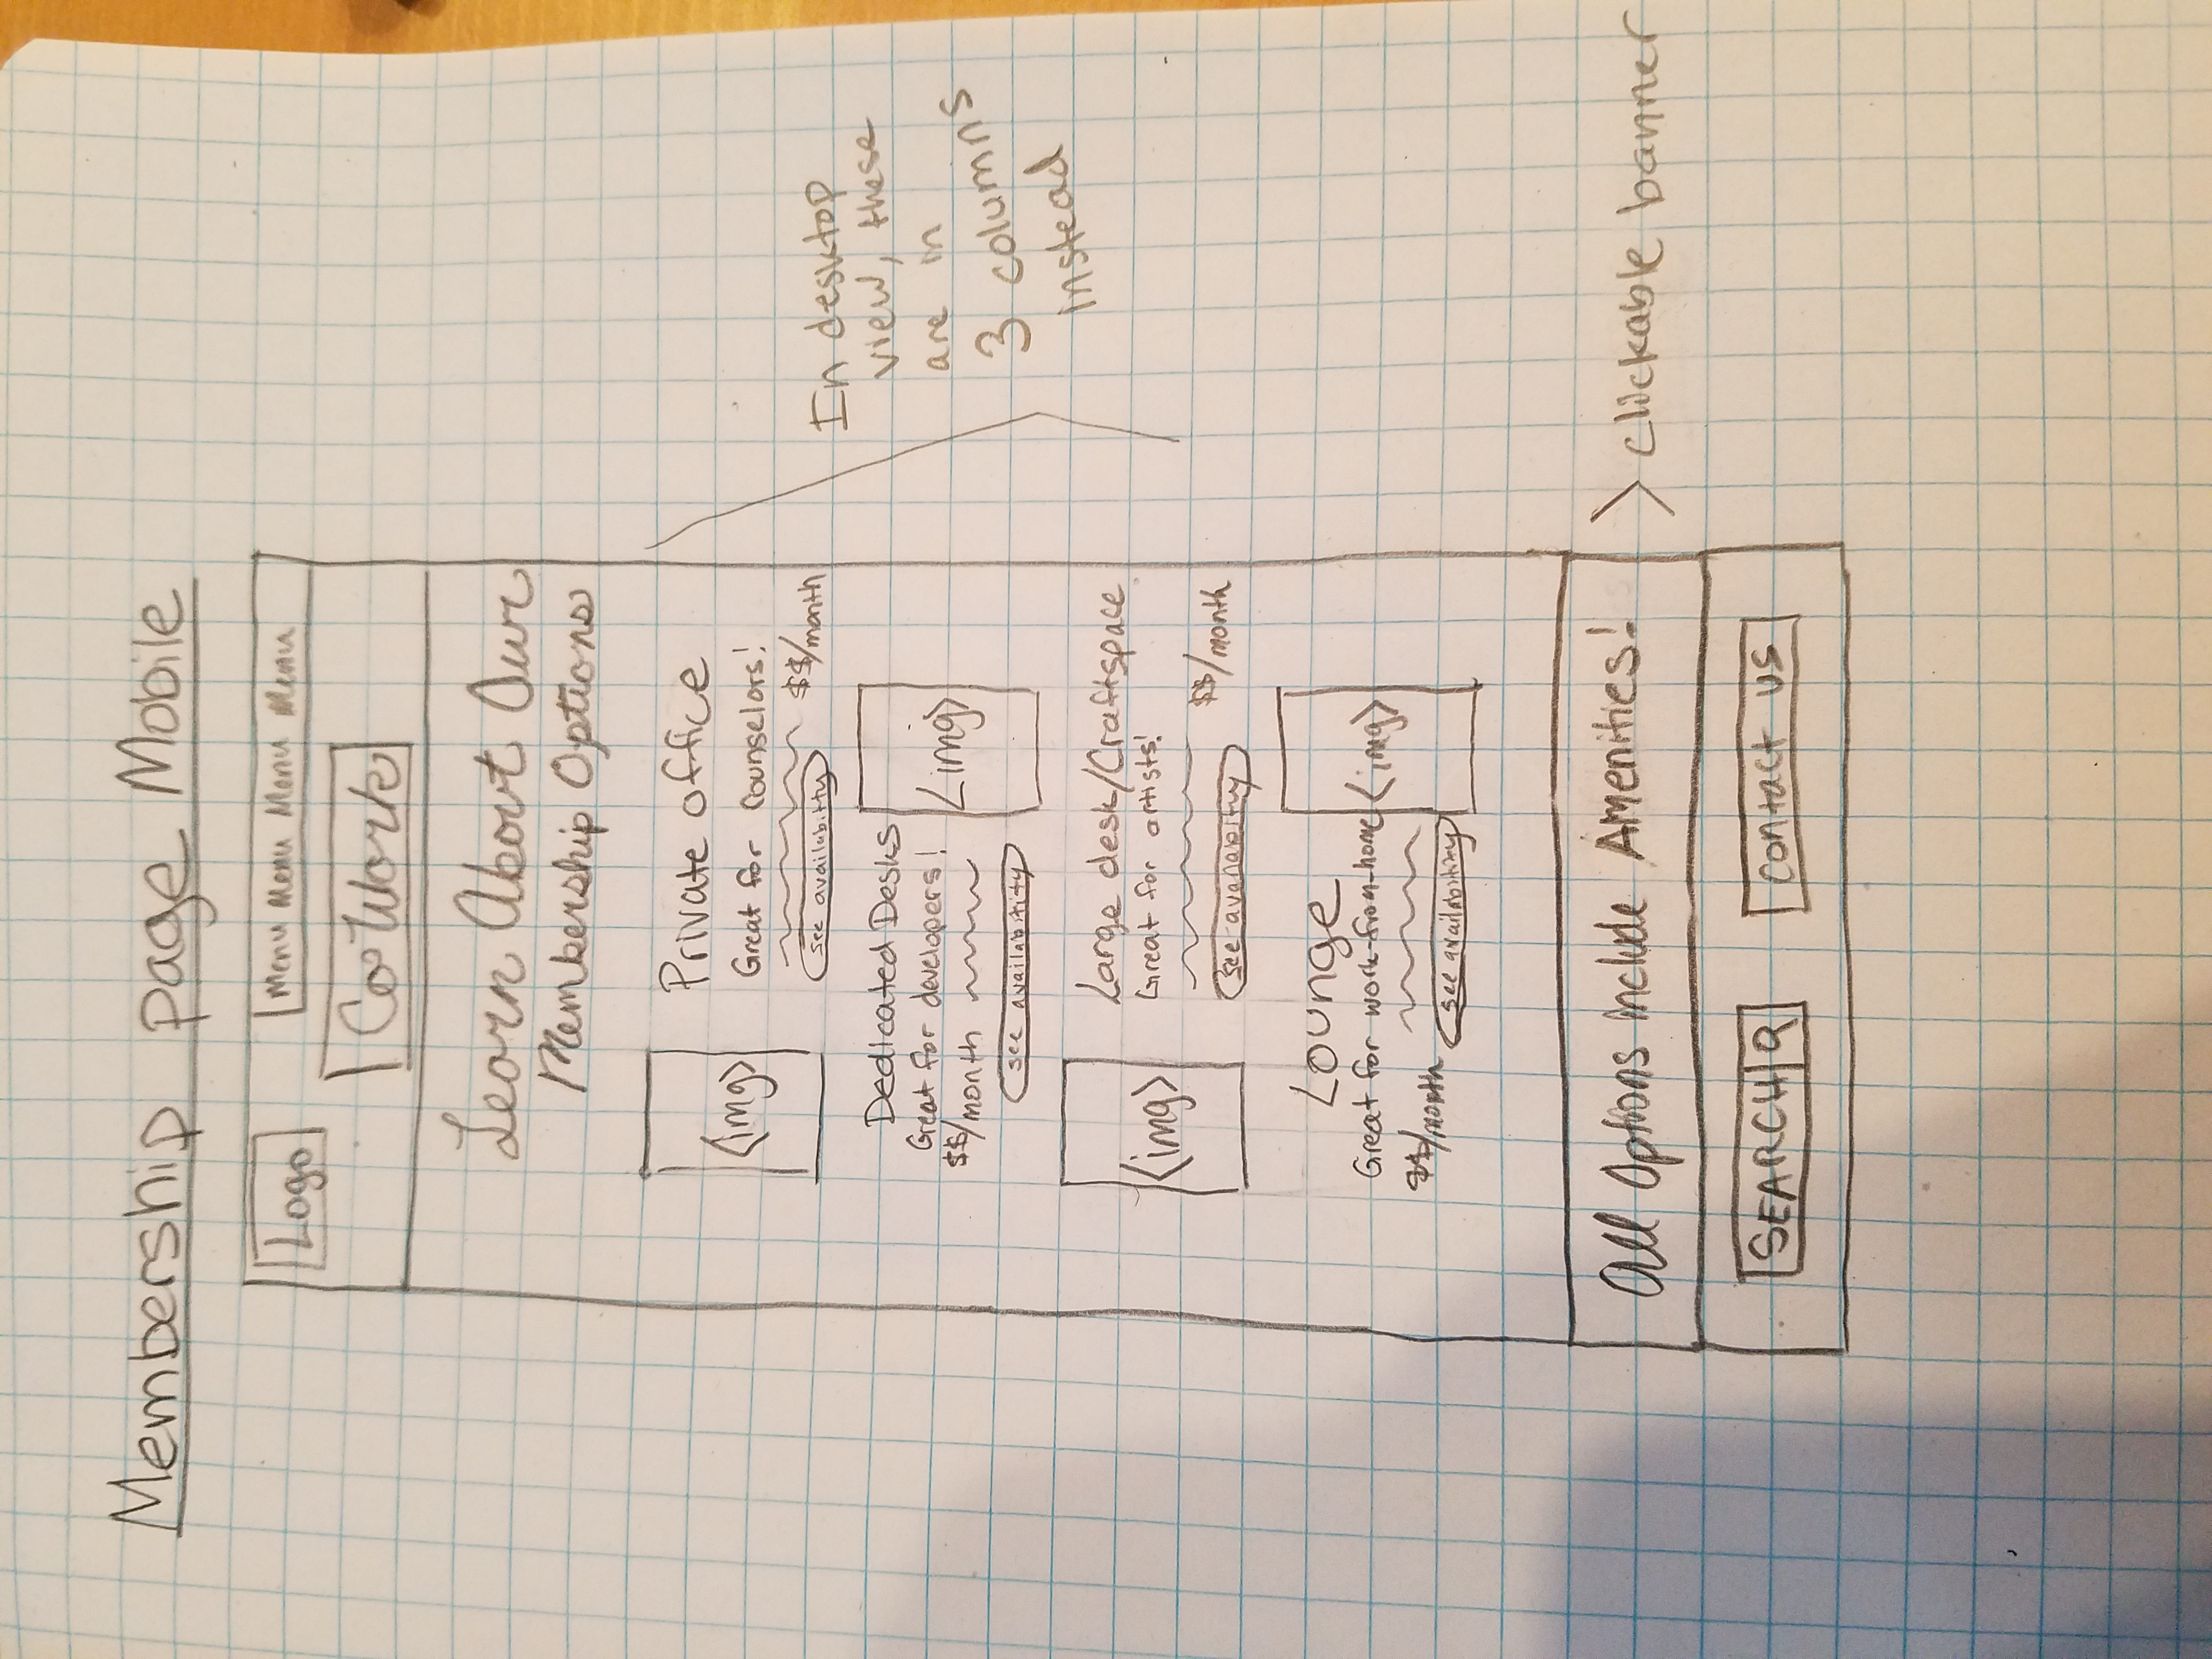 Membership Page Mobile
Logo
Menu Menu Menu Menu Menu
CoWork
Learn About Our
Membership Options
<img>
Private office
Great for counselors!
$$/month
see availability
In desktop
view, these
are in
3 columns
instead
Dedicated Desks
Great for developers!
$$/month
see availability
<img>
<img>
Large desk/Craftspace
Great for artists!
$$/month
see availability
Lounge
Great for work-from-home
$$/month
see availability
<img>
All Options Include Amenities!
> clickable banner
SEARCH
Contact us